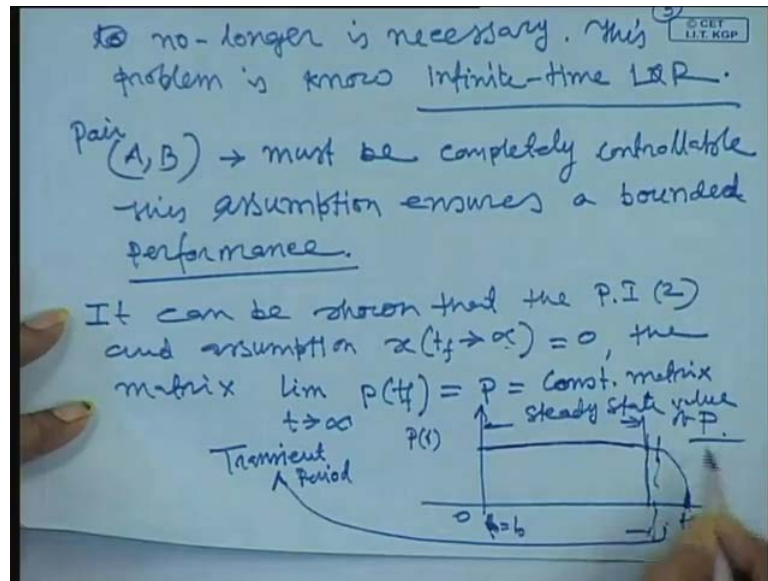 no-longer is necessary. This
problem is know Infinite-time LQR.
Pair (A, B) → must be completely controllable
this assumption ensures a bounded
performance.
It can be shown that the P.I (2)
and assumption x(tf → ∝) = 0, the
matrix lim P(tf) = P = Const. matrix
t→∞
Steady state value
of P.
P(t)
Transient
Period
0
© CET
I.I.T. KGP